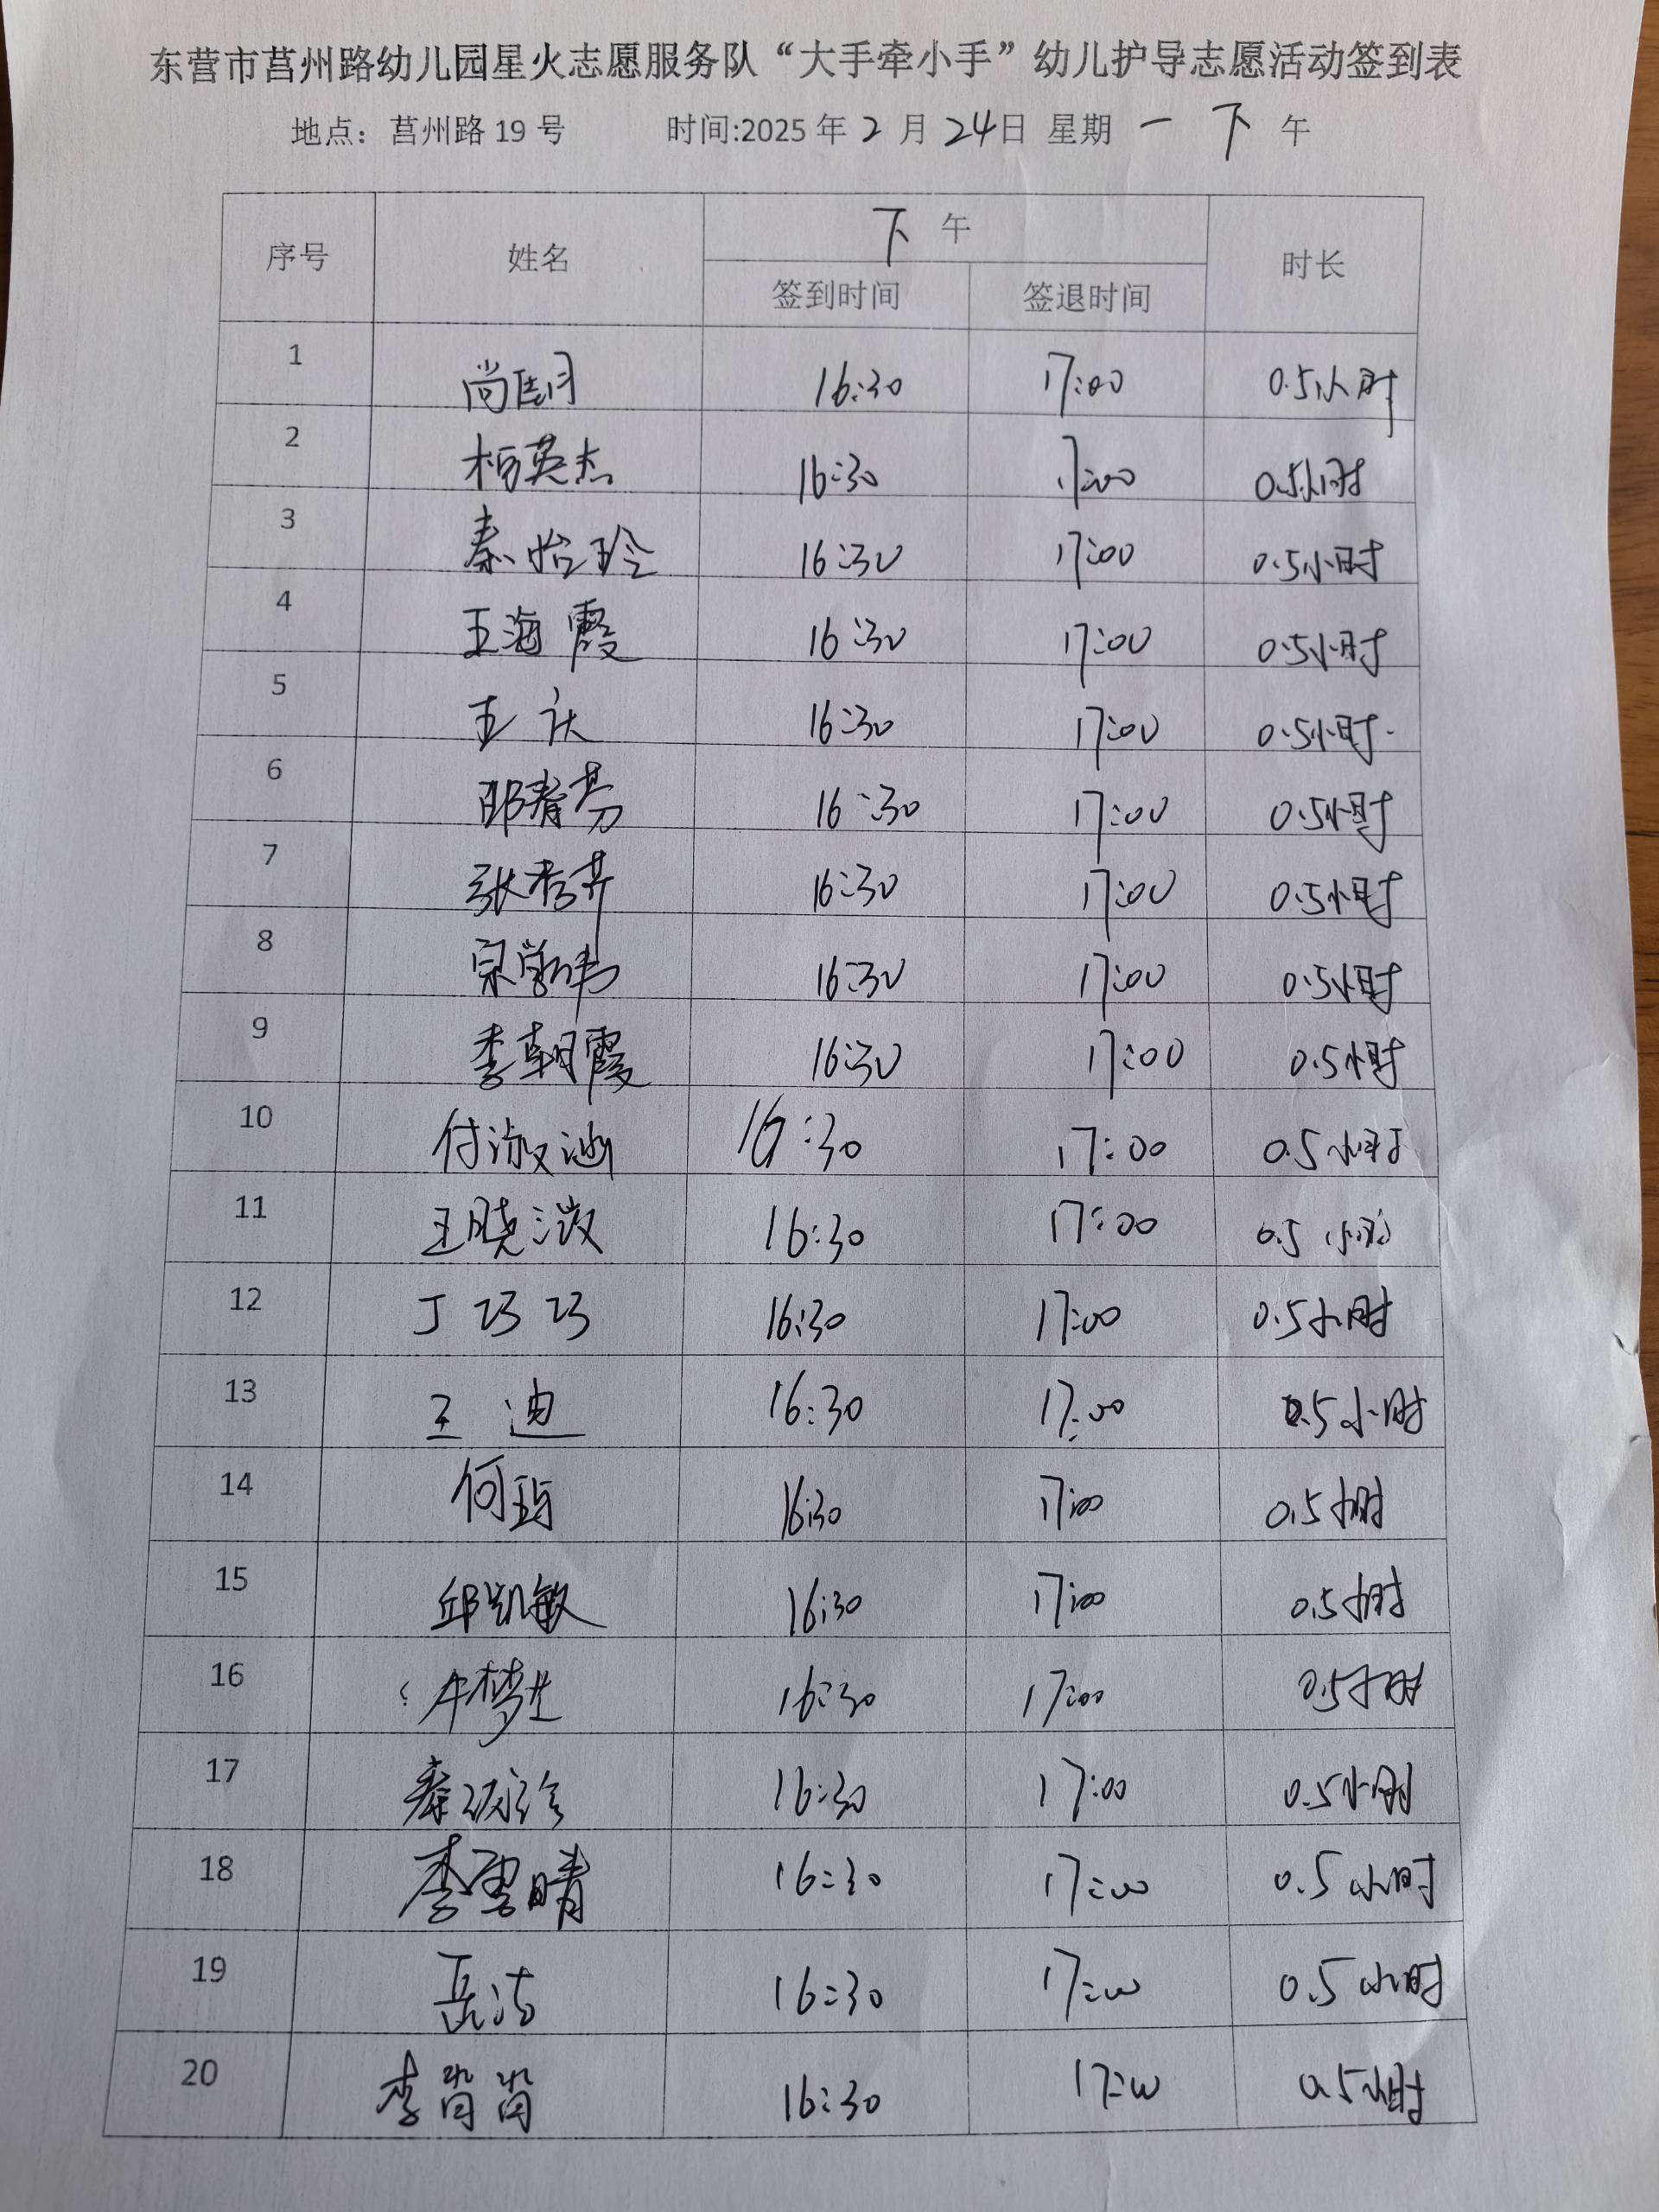 东营市莒州路幼儿园星火志愿服务队“大手牵小手”幼儿护导志愿活动签到表
地点：莒州路 19 号 时间:2025 年 2 月 24日 星期 一 下 午
序号 姓名 下 午 时长
签到时间 签退时间
1 尚 16:30 17:00 0.5小时
2 柏英杰 16:30 17:00 0.5小时
3 秦怡玲 16:30 17:00 0.5小时
4 王海霞 16:30 17:00 0.5小时
5 王庆 16:30 17:00 0.5小时
6 邵春芬 16:30 17:00 0.5小时
7 张秀芹 16:30 17:00 0.5小时
8 宗学伟 16:30 17:00 0.5小时
9 李朝霞 16:30 17:00 0.5小时
10 付淑 16:30 17:00 0.5小时
11 王晓 16:30 17:00 0.5小时
12 丁巧巧 16:30 17:00 0.5小时
13 王迪 16:30 17:00 0.5小时
14 何 16:30 17:00 0.5小时
15 邱凯敏 16:30 17:00 0.5小时
16 牛梦 16:30 17:00 0.5小时
17 秦 16:30 17:00 0.5小时
18 李雪晴 16:30 17:00 0.5小时
19 岳洁 16:30 17:00 0.5小时
20 李 16:30 17:00 0.5小时